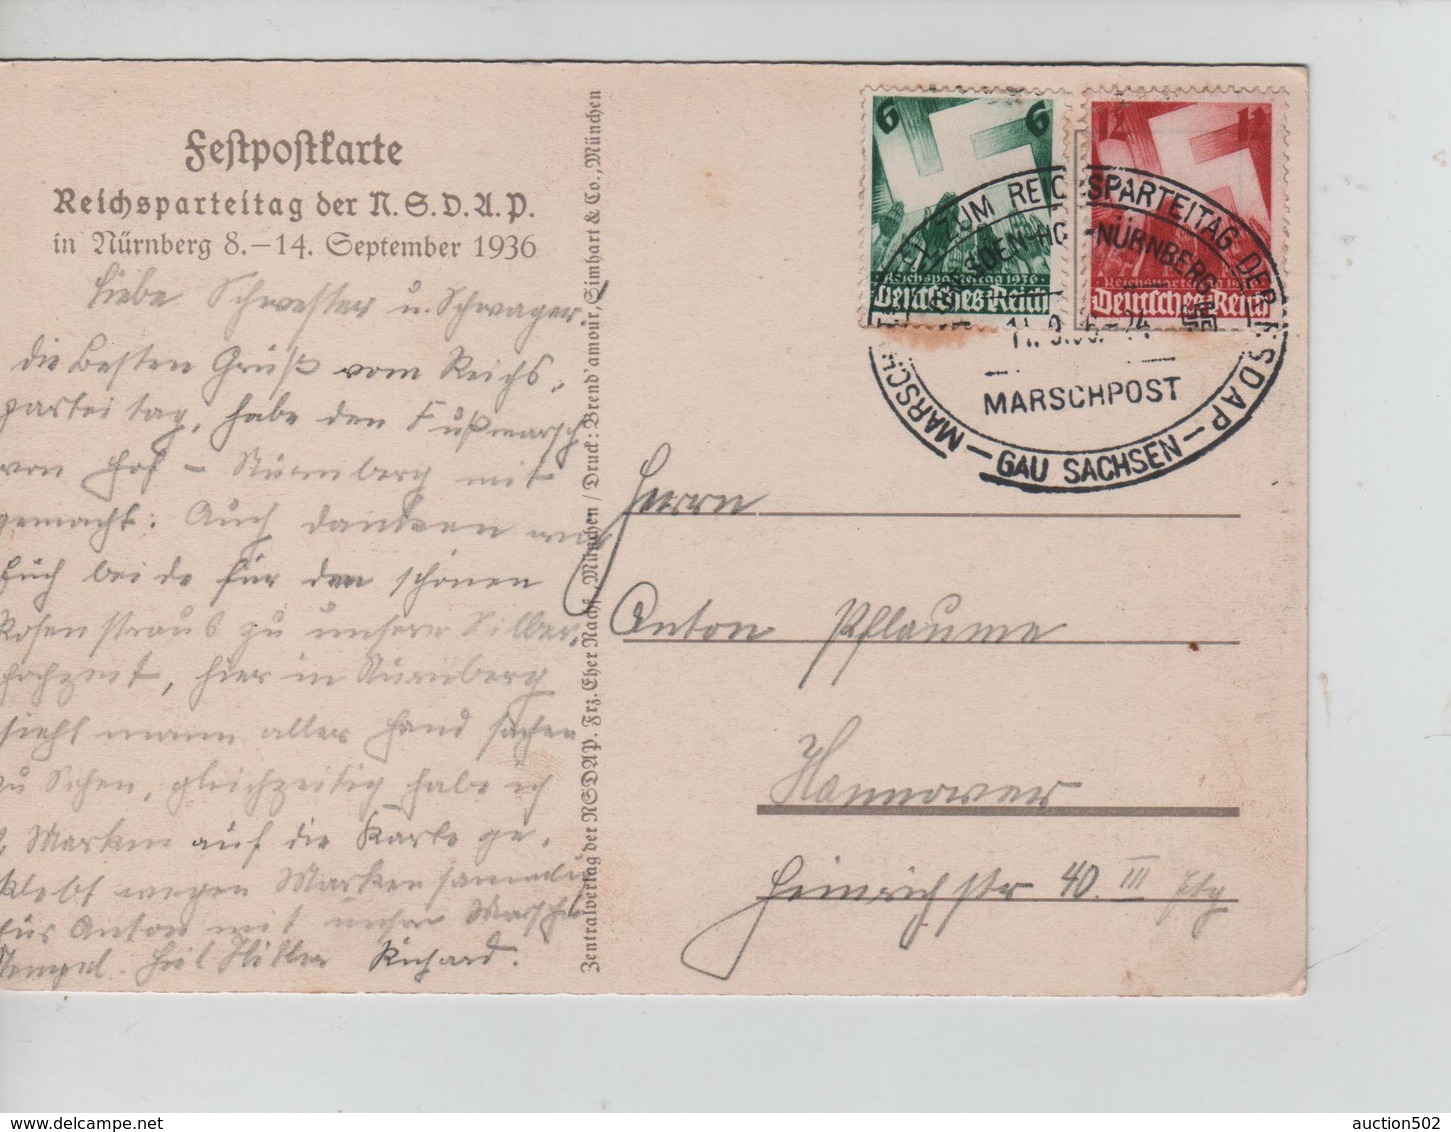 Festpostkarte
Reichsparteitag der N.S.D.A.P.
in Nürnberg 8.–14. September 1936
Liebe Schwester u. Schwager!
die Besten Grüße vom Reichs-
parteitag, habe den Fußmarsch
von Hof – Nürnberg mit
gemacht. Auch danken wir
Euch beide für den schönen
Rosenstraus zu unsere Silber-
hochzeit, hier in Nürnberg
sieht mann aller hand sachen
zu Sehen, gleichzeitig habe ich
2 Marken auf die Karte ge-
klebt wegen Marken
für Anton mit unsere
Stempel. Heil Hitler Richard.
Zentralverlag der NSDAP. Frz. Eher Nachf., München / Druck: Brend'amour, Simhart & Co., München
6 6
Reichsparteitag 1936
Deutsches Reich
12 12
Reichsparteitag
Deutsches Reich
ZUM REICHSPARTEITAG DER NSDAP – GAU SACHSEN –
NÜRNBERG
MARSCHPOST
Herrn
Anton Pflaume
Hannover
Heinrichstr 40. III
auction502